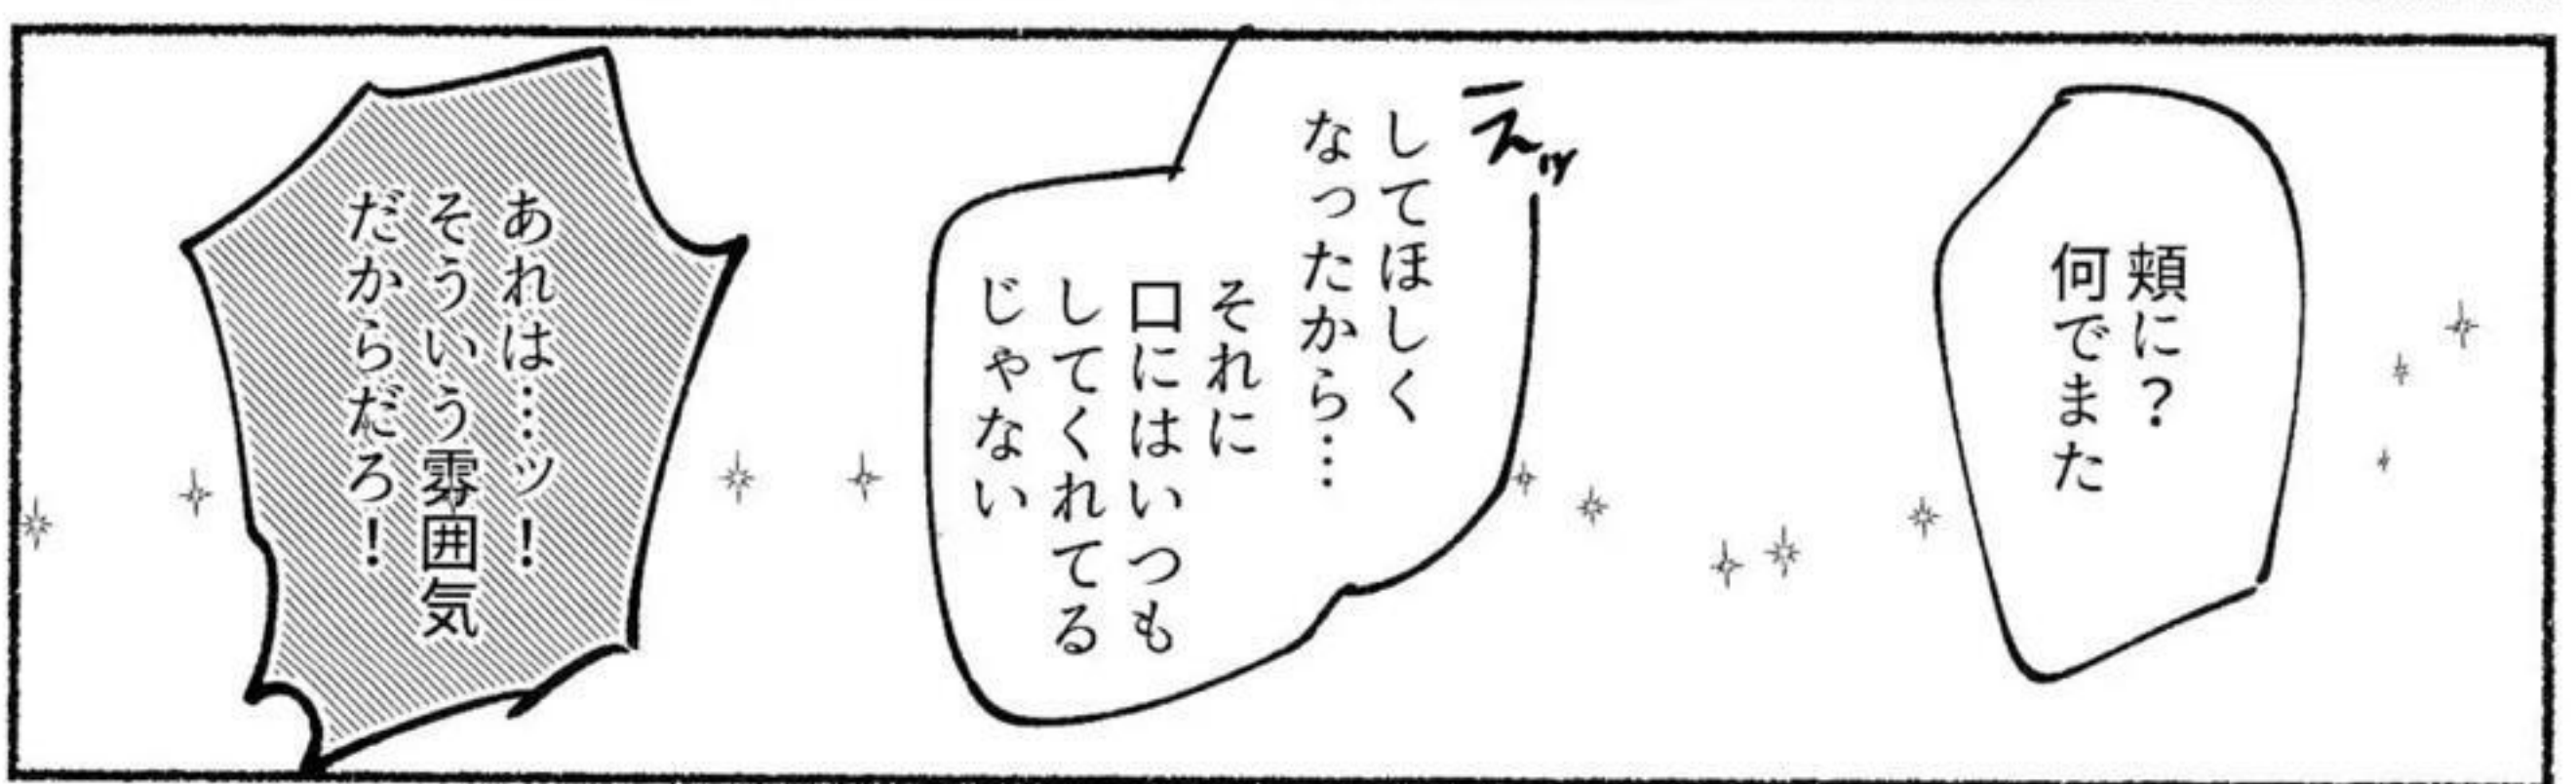 頬に？
何でまた
えッ
してほしく
なったから…
それに
口にはいつも
してくれてる
じゃない
あれは…ッ！
そういう雰囲気
だからだろ！